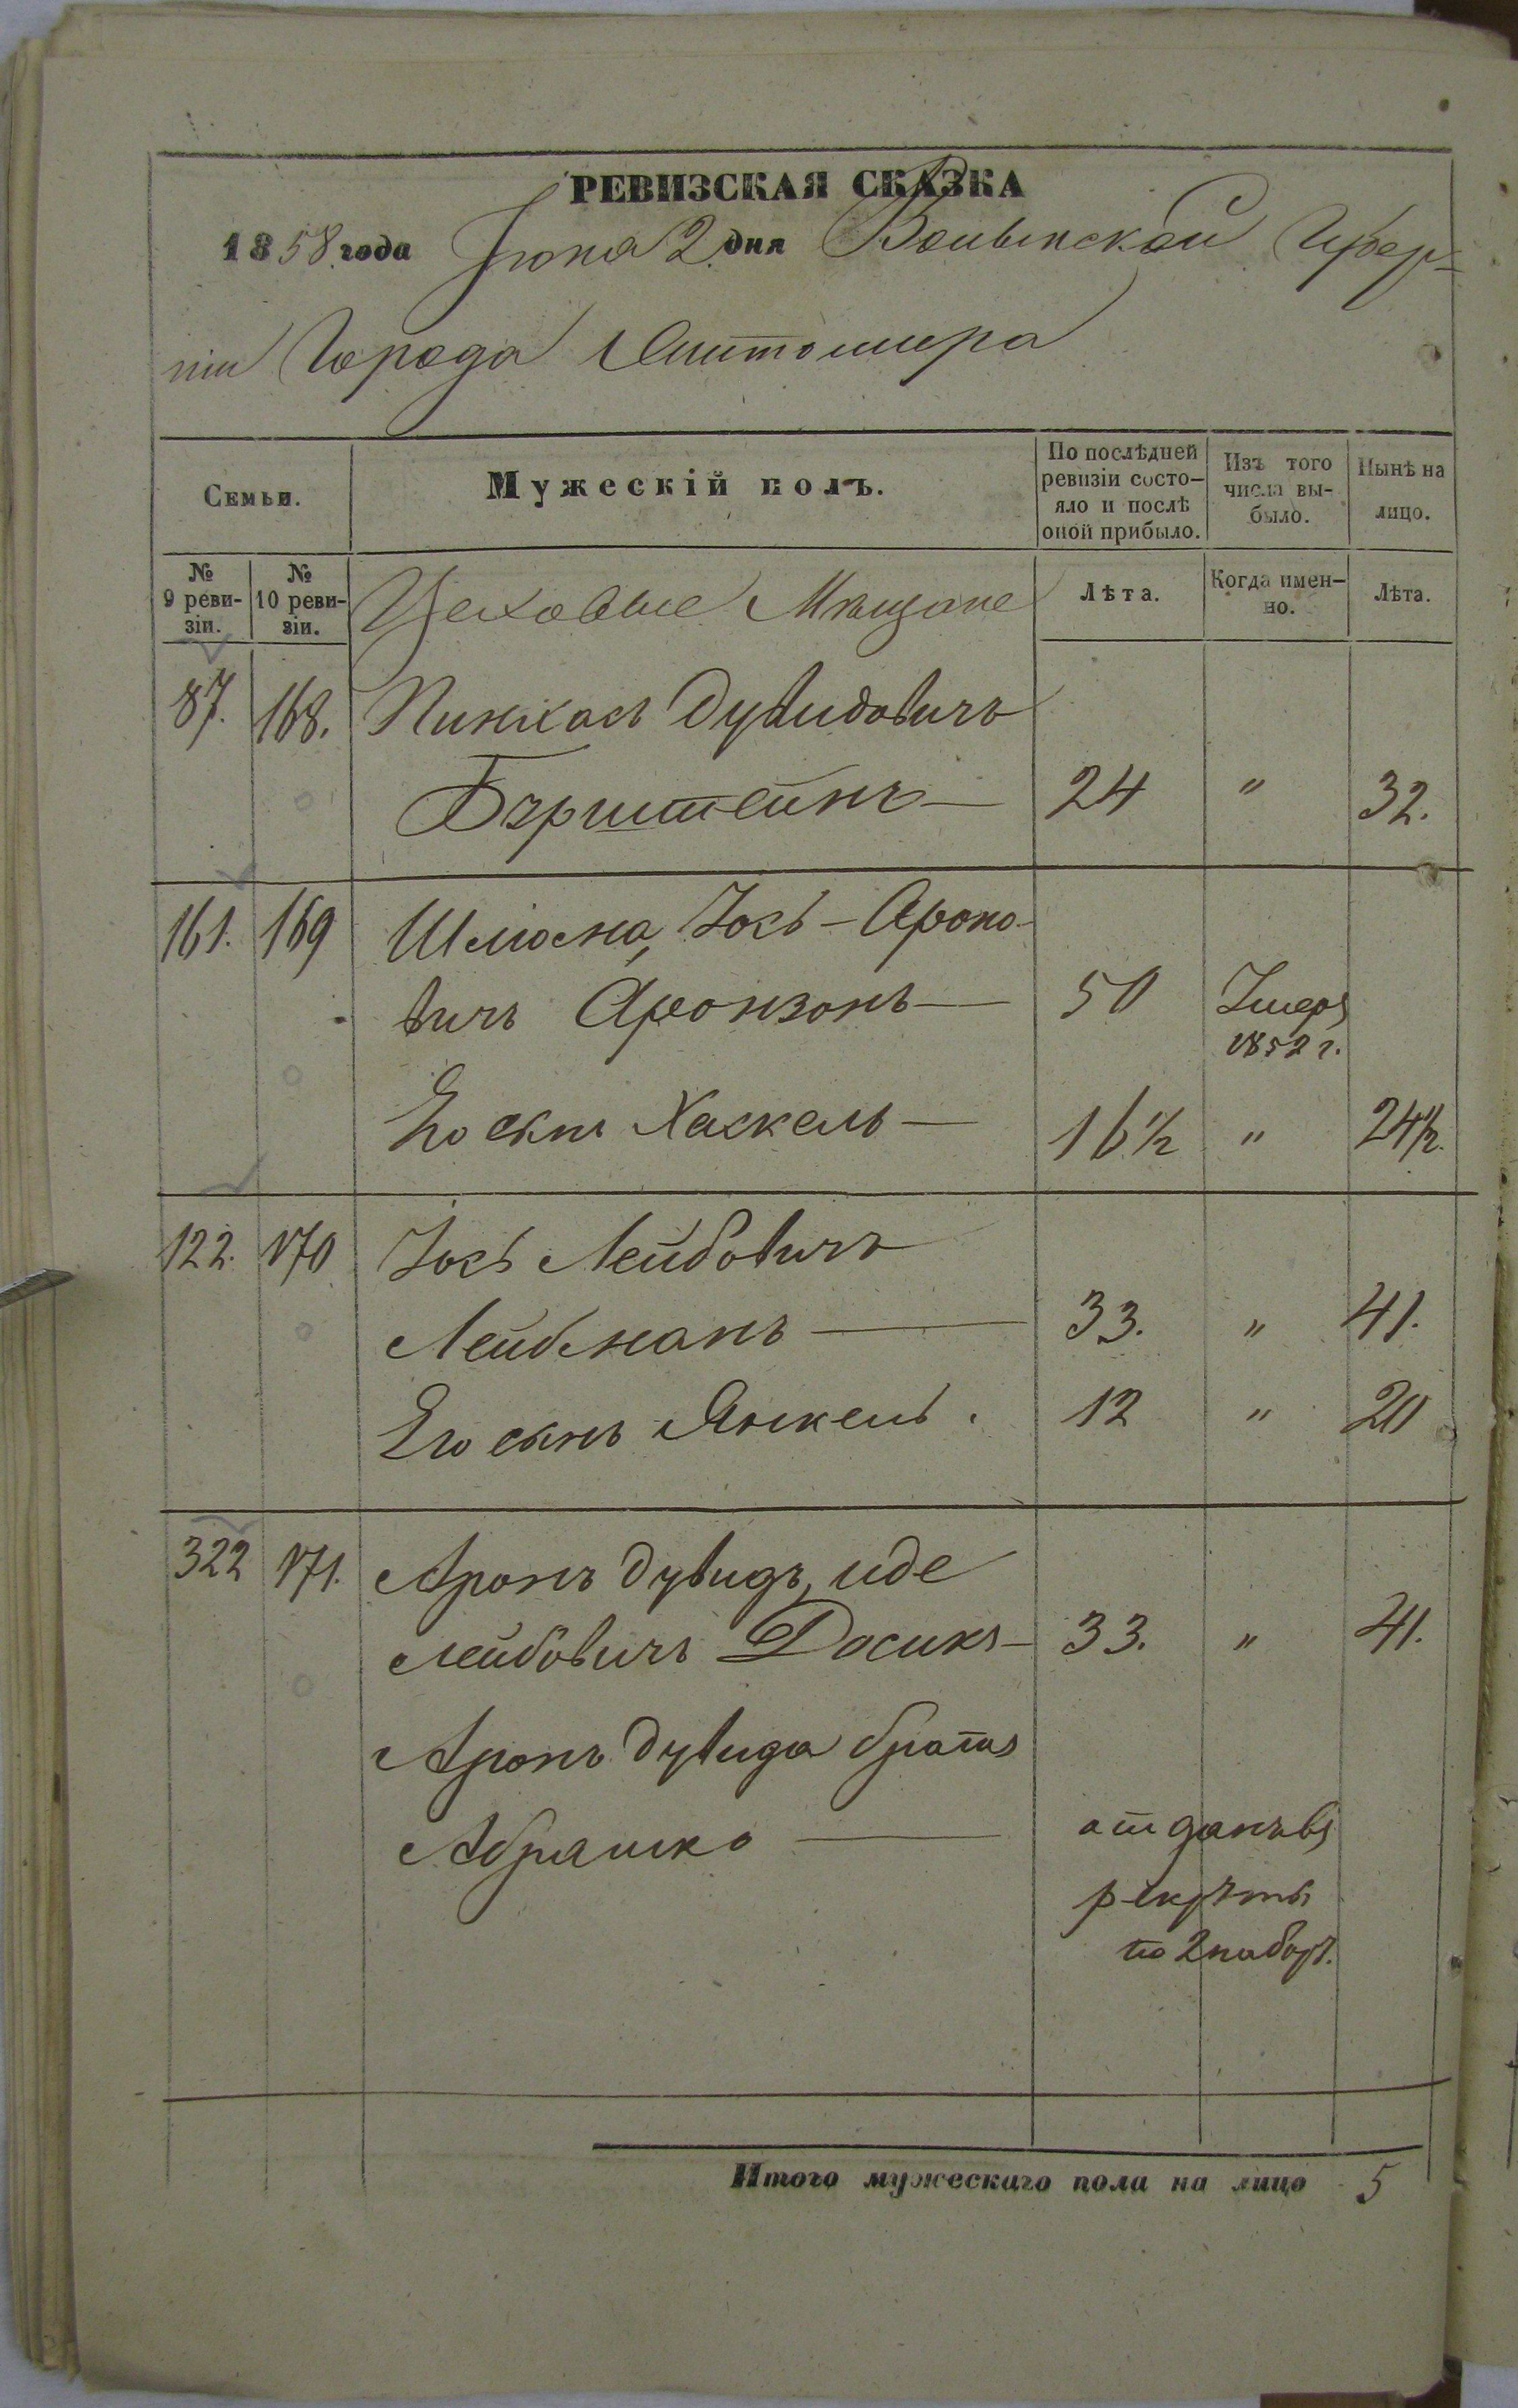 РЕВИЗСКАЯ СКАЗКА
1858 года Іюня 2 дня Волынской Губер-
ніи Города Житомира
Семьи.
Мужескій полъ.
По послѣдней ревизіи состо-яло и послѣ оной прибыло.
Изъ того числа вы-было.
Нынѣ на лицо.
№ 9 реви-зіи.
№ 10 реви-зіи.
Цеховые Мѣщане
Лѣта.
Когда имен-но.
Лѣта.
87. 168. Пинхасъ Дувидовичъ
Бэрштейнъ — 24 " 32.
161. 169 Шлиома, Іось - Ароно-
вичъ Аронзонъ — 50 Умеръ
1852 г.
Его сынъ Хаскель — 16½ " 24½.
122. 170 Іось Лейбовичъ
Лейбманъ — 33. " 41.
Его сынъ Янкель. 12 " 20
322 171. Аронъ Дувидъ, иде
Лейбовичъ Досикъ — 33. " 41.
Аронъ Дувида братъ
Абрашко — отданъ въ
рекруты
по 2 набору.
Итого мужескаго пола на лицо 5